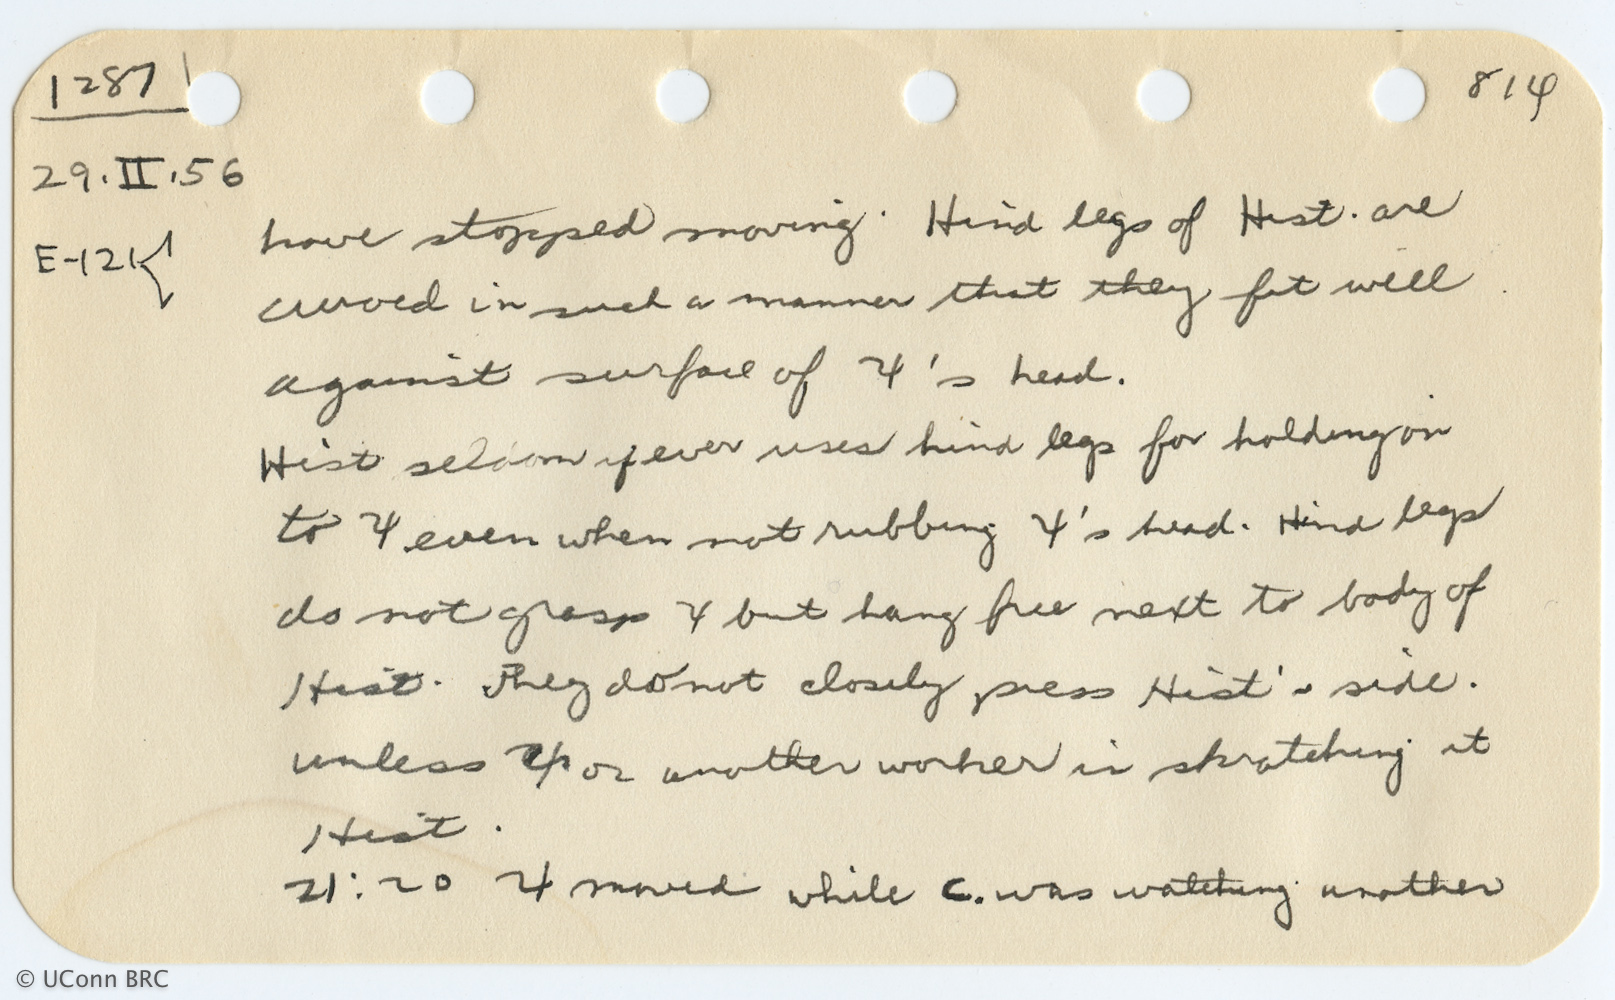 1287
814
29.II.56
E-121
have stopped moving. Hind legs of Hist. are
curved in such a manner that they fit well
against surface of ♃'s head.
Hist seldom if ever uses hind legs for holding on
to ♃ even when not rubbing ♃'s head. Hind legs
do not grasp ♃ but hang free next to body of
Hist. They do not closely press Hist's side.
unless ♃ or another worker is skratching it
Hist.
21:20 ♃ moved while C. was watching another
© UConn BRC